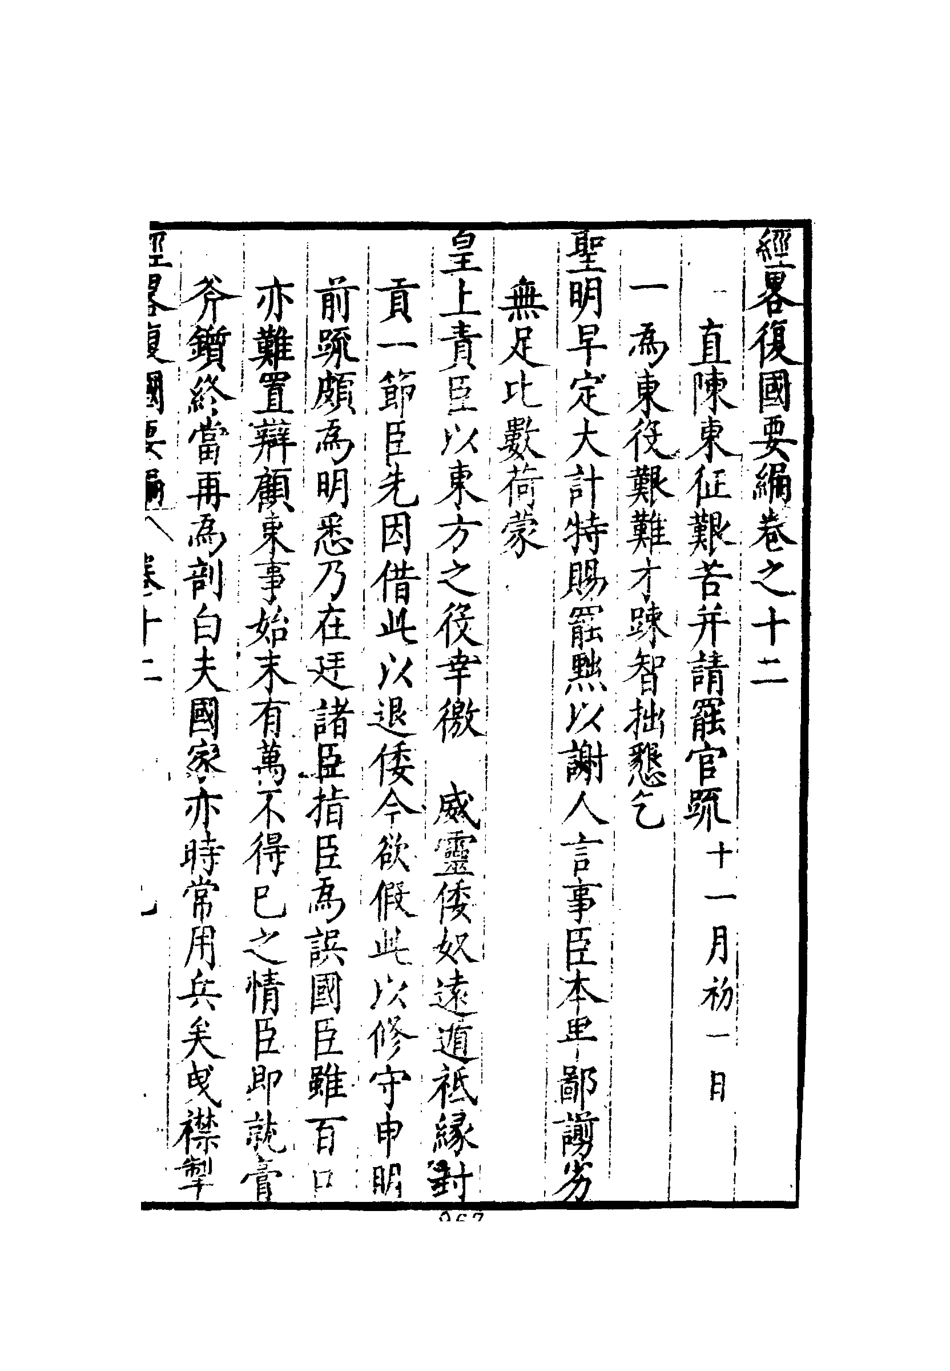 經畧復國要編卷之十二
一直陳東征艱苦并請罷官疏十一月初一日
一為東役艱難才踈智拙懇乞
聖明早定大計特賜罷黜以謝人言事臣本卑鄙謭劣
無足比數荷蒙
皇上責臣以東方之役幸徼 威靈倭奴遠遁祗緣封
貢一節臣先因借此以退倭今欲假此以修守申明
前疏頗為明悉乃在廷諸臣指臣為誤國臣雖百口
亦難置辯顧東事始末有萬不得已之情臣即就膏
斧鑕終當再為剖白夫國家亦時常用兵矣曳襟掣
經畧復國要編 卷十二